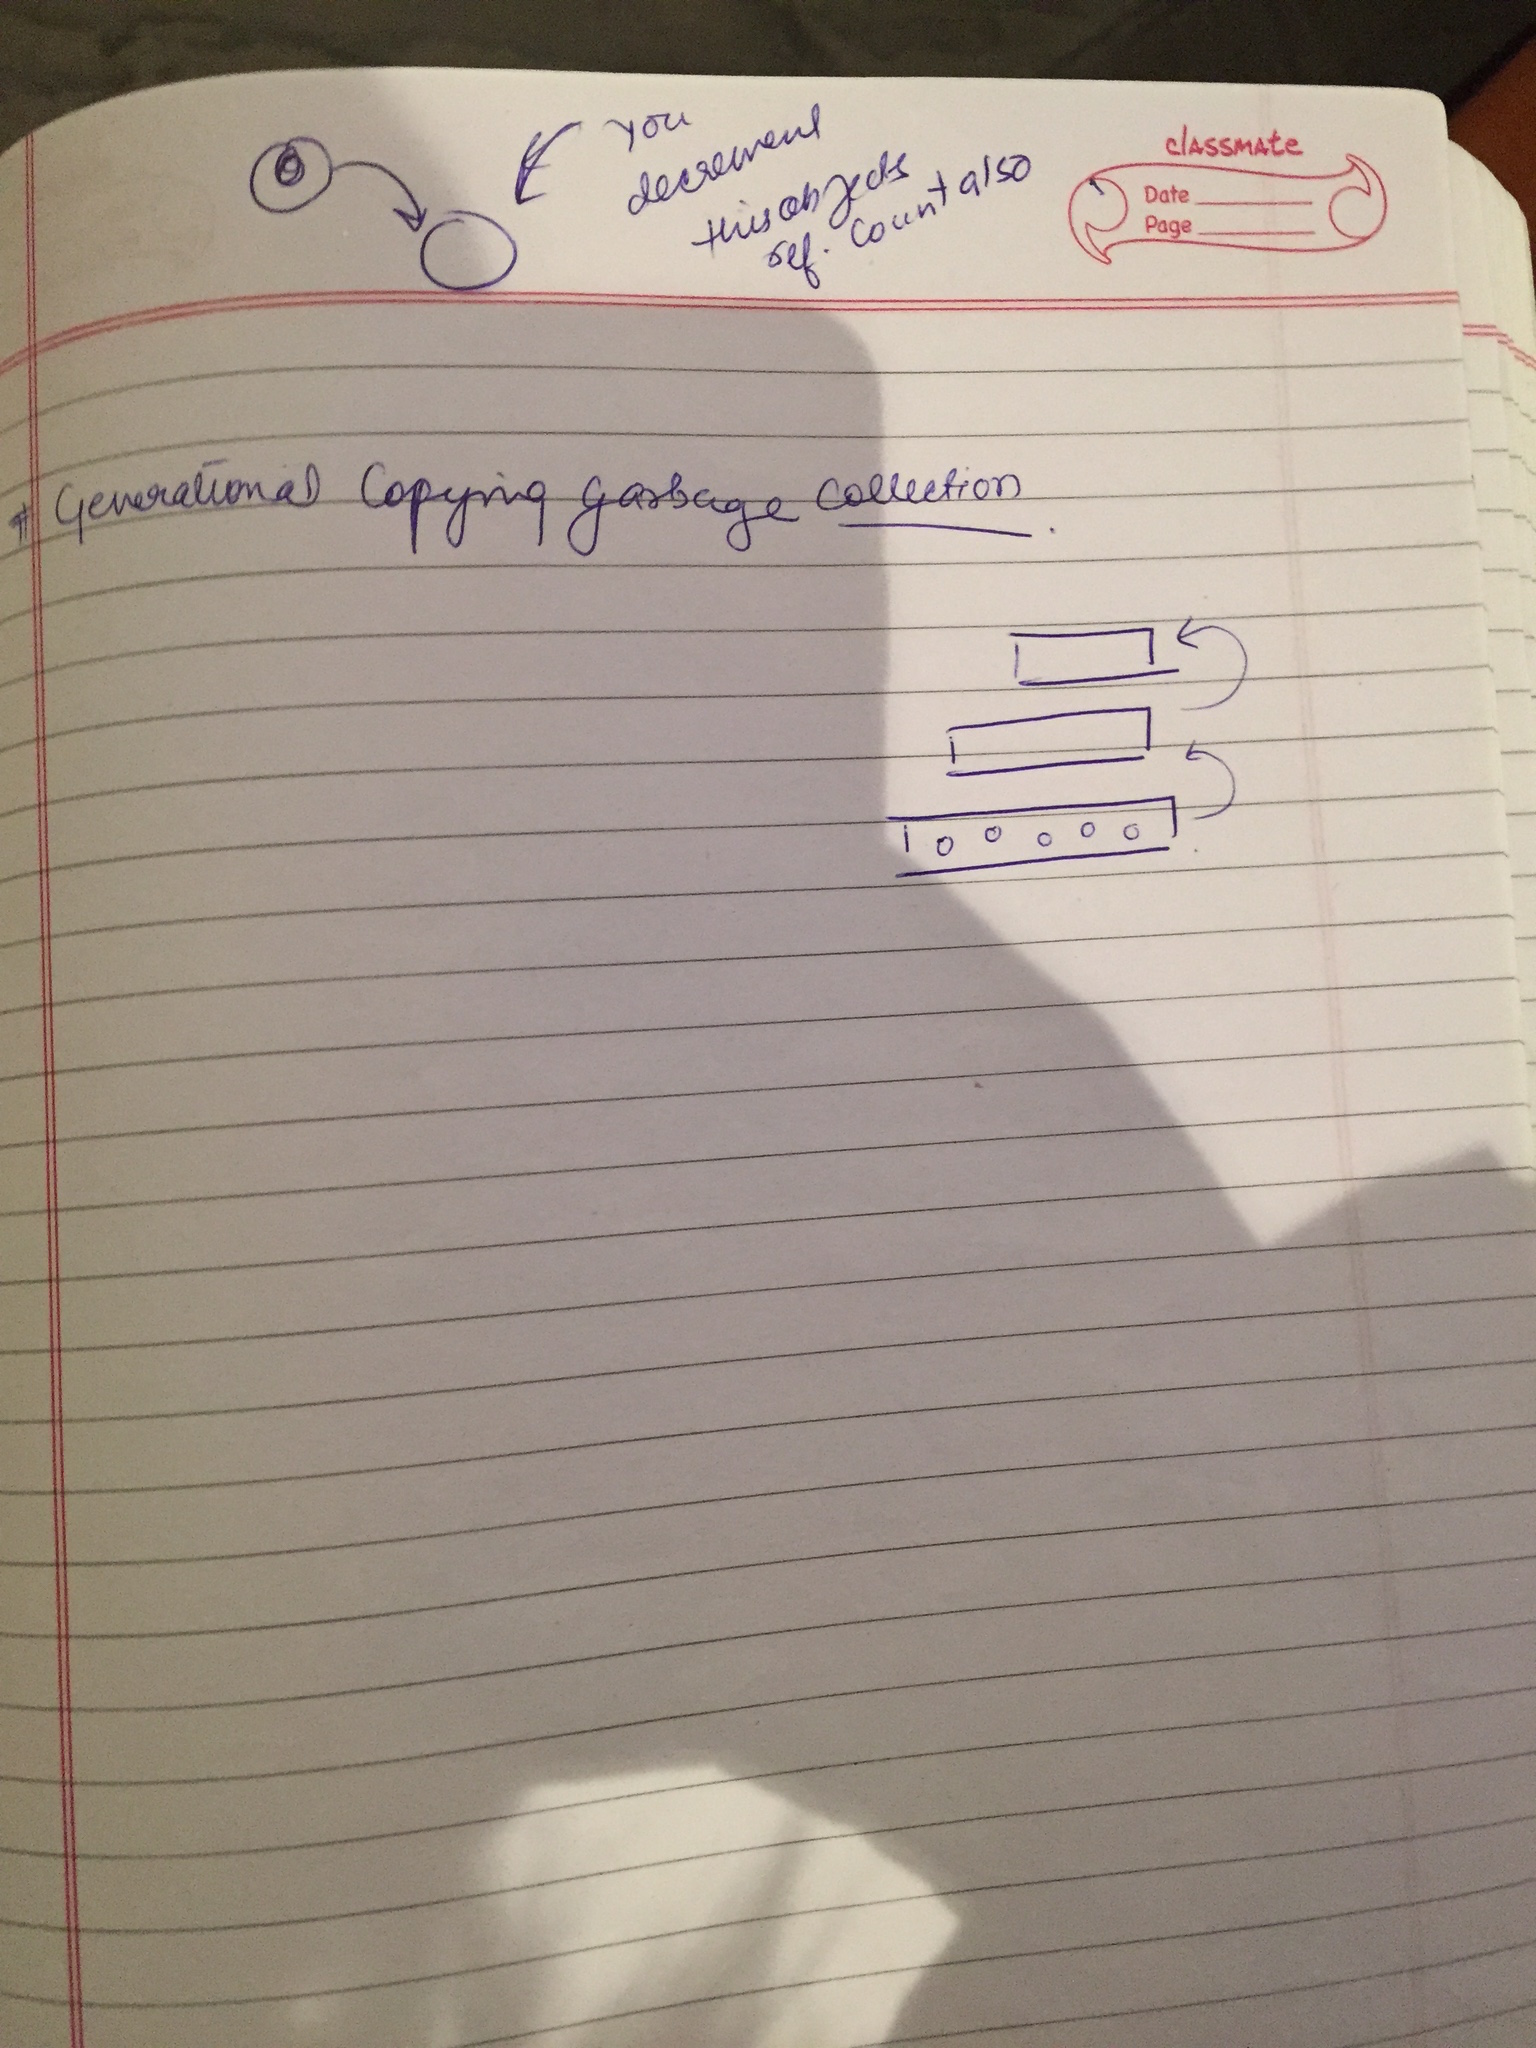 you
decrement
this objects
ref. count also
classmate
Date
Page
0
# Generational Copying Garbage Collection.